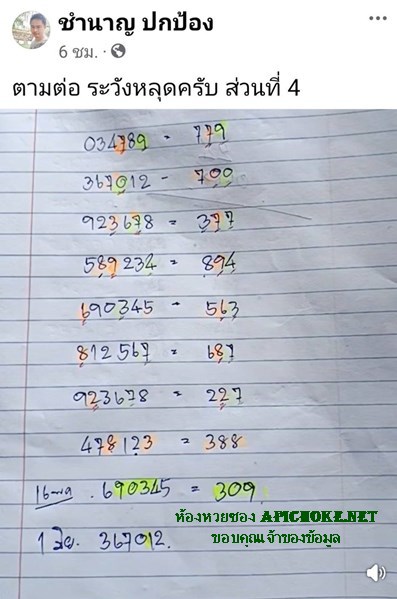 ชำนาญ ปกป้อง
6 ชม. ·
ตามต่อ ระวังหลุดครับ ส่วนที่ 4
034789 = 779
367012 - 700
923678 = 377
589234 = 894
690345 - 563
812567 = 687
923678 = 227
478123 = 388
16 พค . 690345 = 309
ห้องหวยซอง APICHOKE.NET
1 มิย. 367012.
ขอบคุณเจ้าของข้อมูล